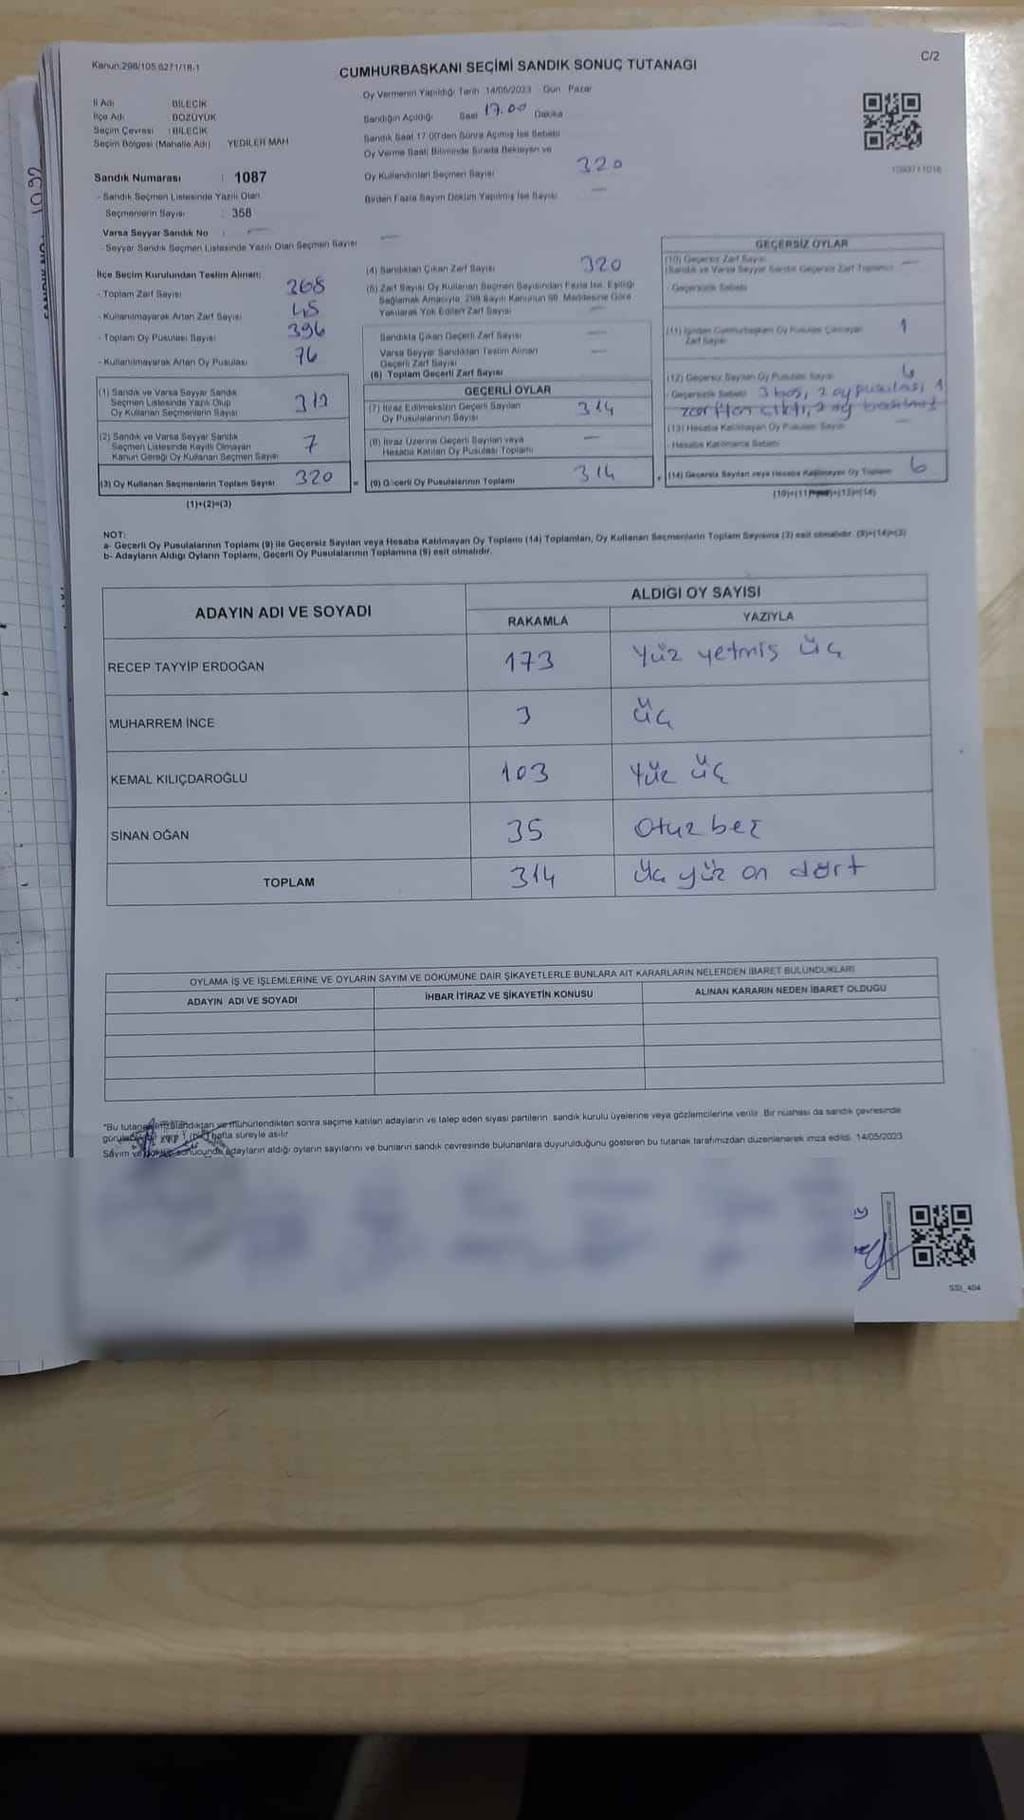 Kanun:298/105.6271/18-1
C/2
CUMHURBAŞKANI SEÇİMİ SANDIK SONUÇ TUTANAĞI
Oy Vermenin Yapıldığı Tarih 14/05/2023 Gün Pazar
İl Adı : BİLECİK
İlçe Adı : BOZÜYÜK
Seçim Çevresi : BİLECİK
Seçim Bölgesi (Mahalle Adı) YEDİLER MAH
Sandığın Açıldığı Saat 17.00 Dakika
Sandık Saat 17.00'den Sonra Açılmış İse Sebebi
Oy Verme Saati Bitiminde Sırada Bekleyen ve
Oy Kullandırılan Seçmen Sayısı 320
Birden Fazla Sayım Döküm Yapılmış İse Sayısı —
Sandık Numarası : 1087
- Sandık Seçmen Listesinde Yazılı Olan
Seçmenlerin Sayısı : 358
Varsa Seyyar Sandık No : —
- Seyyar Sandık Seçmen Listesinde Yazılı Olan Seçmen Sayısı —
İlçe Seçim Kurulundan Teslim Alınan;
- Toplam Zarf Sayısı 368
- Kullanılmayarak Artan Zarf Sayısı
- Toplam Oy Pusulası Sayısı 396
- Kullanılmayarak Artan Oy Pusulası 76
(1) Sandık ve Varsa Seyyar Sandık
Seçmen Listesinde Yazılı Olup
Oy Kullanan Seçmenlerin Sayısı
(2) Sandık ve Varsa Seyyar Sandık
Seçmen Listesinde Kayıtlı Olmayan
Kanun Gereği Oy Kullanan Seçmen Sayısı 7
(3) Oy Kullanan Seçmenlerin Toplam Sayısı 320
(1)+(2)=(3)
(4) Sandıktan Çıkan Zarf Sayısı 320
(5) Zarf Sayısı Oy Kullanan Seçmen Sayısından Fazla İse, Eşitliği
Sağlamak Amacıyla, 298 Sayılı Kanunun 98. Maddesine Göre
Yakılarak Yok Edilen Zarf Sayısı —
Sandıkta Çıkan Geçerli Zarf Sayısı —
Varsa Seyyar Sandıktan Teslim Alınan
Geçerli Zarf Sayısı —
(6) Toplam Geçerli Zarf Sayısı
GEÇERLİ OYLAR
(7) İtiraz Edilmeksizin Geçerli Sayılan
Oy Pusulalarının Sayısı 314
(8) İtiraz Üzerine Geçerli Sayılan veya
Hesaba Katılan Oy Pusulası Toplamı —
(9) Geçerli Oy Pusulalarının Toplamı 314
GEÇERSİZ OYLAR
(10) Geçersiz Zarf Sayısı
(Sandık ve Varsa Seyyar Sandık Geçersiz Zarf Toplamı) —
- Geçersizlik Sebebi
(11) İçinden Cumhurbaşkanı Oy Pusulası Çıkmayan
Zarf Sayısı 1
(12) Geçersiz Sayılan Oy Pusulası Sayısı 6
- Geçersizlik Sebebi 3 boş, 2 oy pusulası 1
zarftan çıktı, 2 oy
(13) Hesaba Katılmayan Oy Pusulası Sayısı —
- Hesaba Katılmama Sebebi
(14) Geçersiz Sayılan veya Hesaba Katılmayan Oy Toplamı 6
(10)+(11)+(12)+(13)=(14)
NOT:
a- Geçerli Oy Pusulalarının Toplamı (9) ile Geçersiz Sayılan veya Hesaba Katılmayan Oy Toplamı (14) Toplamları, Oy Kullanan Seçmenlerin Toplam Sayısına (3) eşit olmalıdır. (9)+(14)=(3)
b- Adayların Aldığı Oyların Toplamı, Geçerli Oy Pusulalarının Toplamına (9) eşit olmalıdır.
ADAYIN ADI VE SOYADI
ALDIĞI OY SAYISI
RAKAMLA YAZIYLA
RECEP TAYYİP ERDOĞAN 173 Yüz yetmiş üç
MUHARREM İNCE 3 üç
KEMAL KILIÇDAROĞLU 103 Yüz üç
SİNAN OĞAN 35 Otuz beş
TOPLAM 314 üç yüz on dört
OYLAMA İŞ VE İŞLEMLERİNE VE OYLARIN SAYIM VE DÖKÜMÜNE DAİR ŞİKAYETLERLE BUNLARA AİT KARARLARIN NELERDEN İBARET BULUNDUKLARI
ADAYIN ADI VE SOYADI İHBAR İTİRAZ VE ŞİKAYETİN KONUSU ALINAN KARARIN NEDEN İBARET OLDUĞU
"Bu tutanak imzalandıktan ve mühürlendikten sonra seçime katılan adayların ve talep eden siyasi partilerin sandık kurulu üyelerine veya gözlemcilerine verilir. Bir nüshası da sandık çevresinde
hafta süreyle asılır
Sayım ve döküm sonucunda adayların aldığı oyların sayılarını ve bunların sandık çevresinde bulunanlara duyurulduğunu gösteren bu tutanak tarafımızdan düzenlenerek imza edildi. 14/05/2023
SSI_404